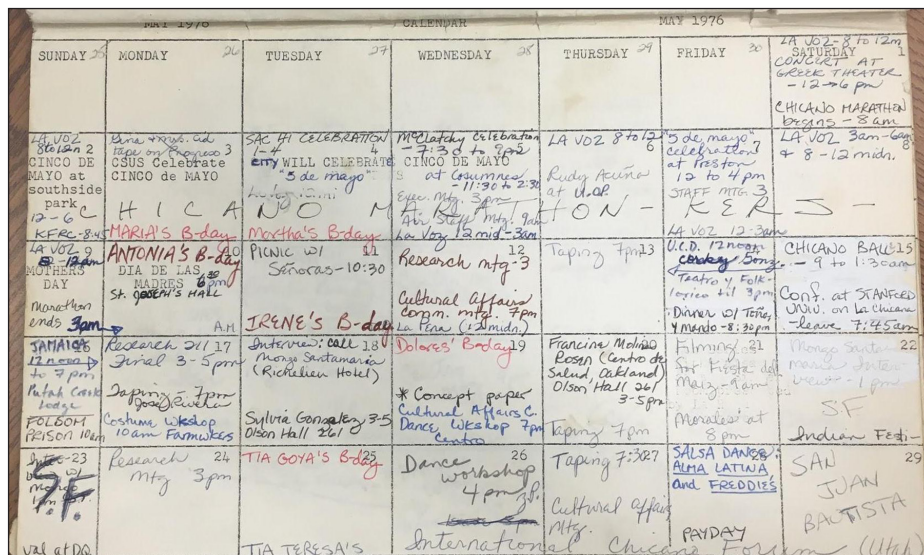 MAY 1976
CALENDAR
MAY 1976
SUNDAY 25
MONDAY 26
TUESDAY 27
WEDNESDAY 28
THURSDAY 29
FRIDAY 30
LA VOZ-8 to 12m
SATURDAY 1
CONCERT AT
GREEK THEATER
-12→6 pm
CHICANO MARATHON
begins-8am
LA VOZ
8 to 12m 2
CINCO DE
MAYO at
southside
park
12-6
KFRC-8:45
tape on Progreso 3
CSUS Celebrate
CINCO de MAYO
MARIA'S B-day
SAC HI CELEBRATION
1-4 4
WILL CELEBRATE
"5 de mayo"
Martha's B-day
McClatchy Celebration
-7:30 to 9pm 5
CINCO DE MAYO
at Cosumnes
-11:30 to 2:30
Exec. Mtg. 3pm
Air Staff Mtg. 9am
La Voz 12mid-3am
LA VOZ 8 to 12
6
Rudy Acuña
at U.O.P.
"5 de mayo"
celebration 7
at Preston
12 to 4pm
STAFF MTG. 3
LA VOZ 12-3am
LA VOZ 3am-6am
& 8-12 midn. 8
CHICANO MARATHON-KERS-
LA VOZ 9
-12am
MOTHERS
DAY
Marathon
ends 3am
ANTONIA'S B-day 10
DIA DE LAS
MADRES 6:30 pm
St. JOSEPH'S HALL
A.M
PICNIC W/ 11
Señoras-10:30
IRENE'S B-day
12
Research mtg-3
Cultural Affairs
comm. mtg. 7pm
La Pena (12 midn.)
Taping 7pm 13
U.C.D. 12noon
Teatro y Folk-
lorico til 3pm
Dinner w/ Toñas
y mando-8:30pm
CHICANO BALL 15
-9 to 1:30am
Conf. at STANFORD
UNIV. on La Chicana
-leave 7:45am
JAMAICA 16
12 noon
to 7 pm
Putah Creek
Lodge
FOLSOM
PRISON 10am
Research 211 17
Final 3-5pm
Taping-7pm
Jose Rivera
Costume Wkshop
10am Farmwkers
Interview: call 18
Mongo Santamaria
(Richelieu Hotel)
Sylvia Gonzalez 3-5
Olson Hall 261
Dolores' B-day 19
* Concept paper
Cultural Affairs C.
Dance Wkshop 7pm
Centro
Francine Molina 20
Rosen (Centro de
Salud, Oakland)
Olson Hall 261
3-5pm
Taping 7pm
Filming 21
for Fiesta del
Maiz-9am
Morales' at
8pm
22
Mongo Santa
maria Inter
view-1pm
S.F.
Indian Festi-
23
S.F.
val at DQ
Research 24
Mtg 3pm
TIA GOYA'S B-day 25
TIA TERESA'S
Dance 26
workshop
4pm
Taping 7:30 27
Cultural Affairs
Mtg.
SALSA DANCE:
ALMA LATINA
and FREDDIE'S
PAYDAY
SAN 29
JUAN
BAUTISTA
International Chicano Forum (Utah